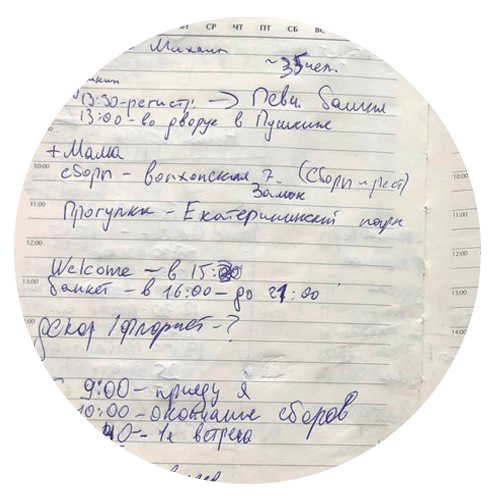 СР ЧТ ПТ СБ ВС
Михаил
~35 чел.
13:30 - регистр. →
13:00 - во дворце в Пушкине
+ Мама
10:00
сборы - (сборы и рест)
Замок
11:00
11:00
Прогулка - Екатерининский парк
12:00
12:00
Welcome - в 15:
13:00
13:00
банкет - в 16:00 - до 21:00
14:00
декор / флорист - ?
9:00 - приеду я
10:00 - окончание сборов
40 - 1я встреча